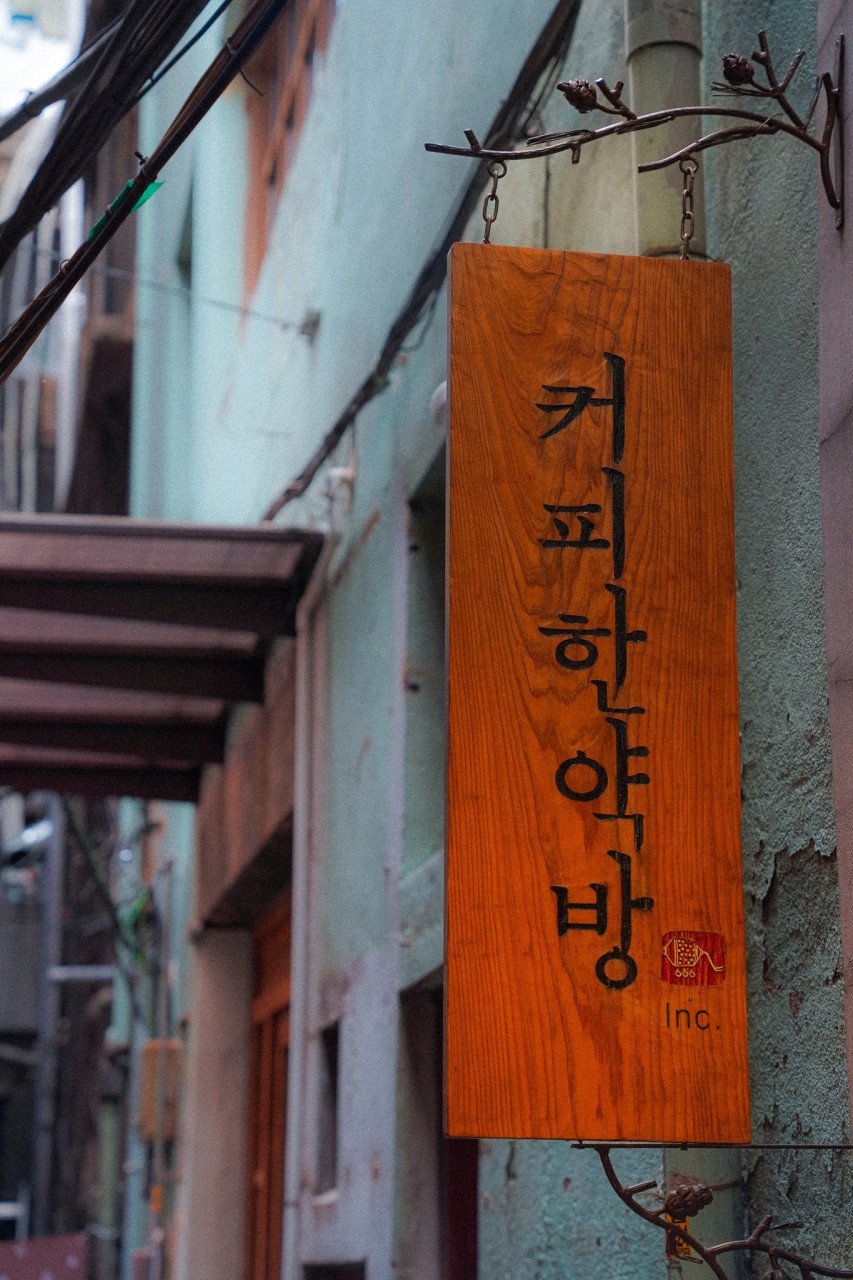 커피한약방
Inc.